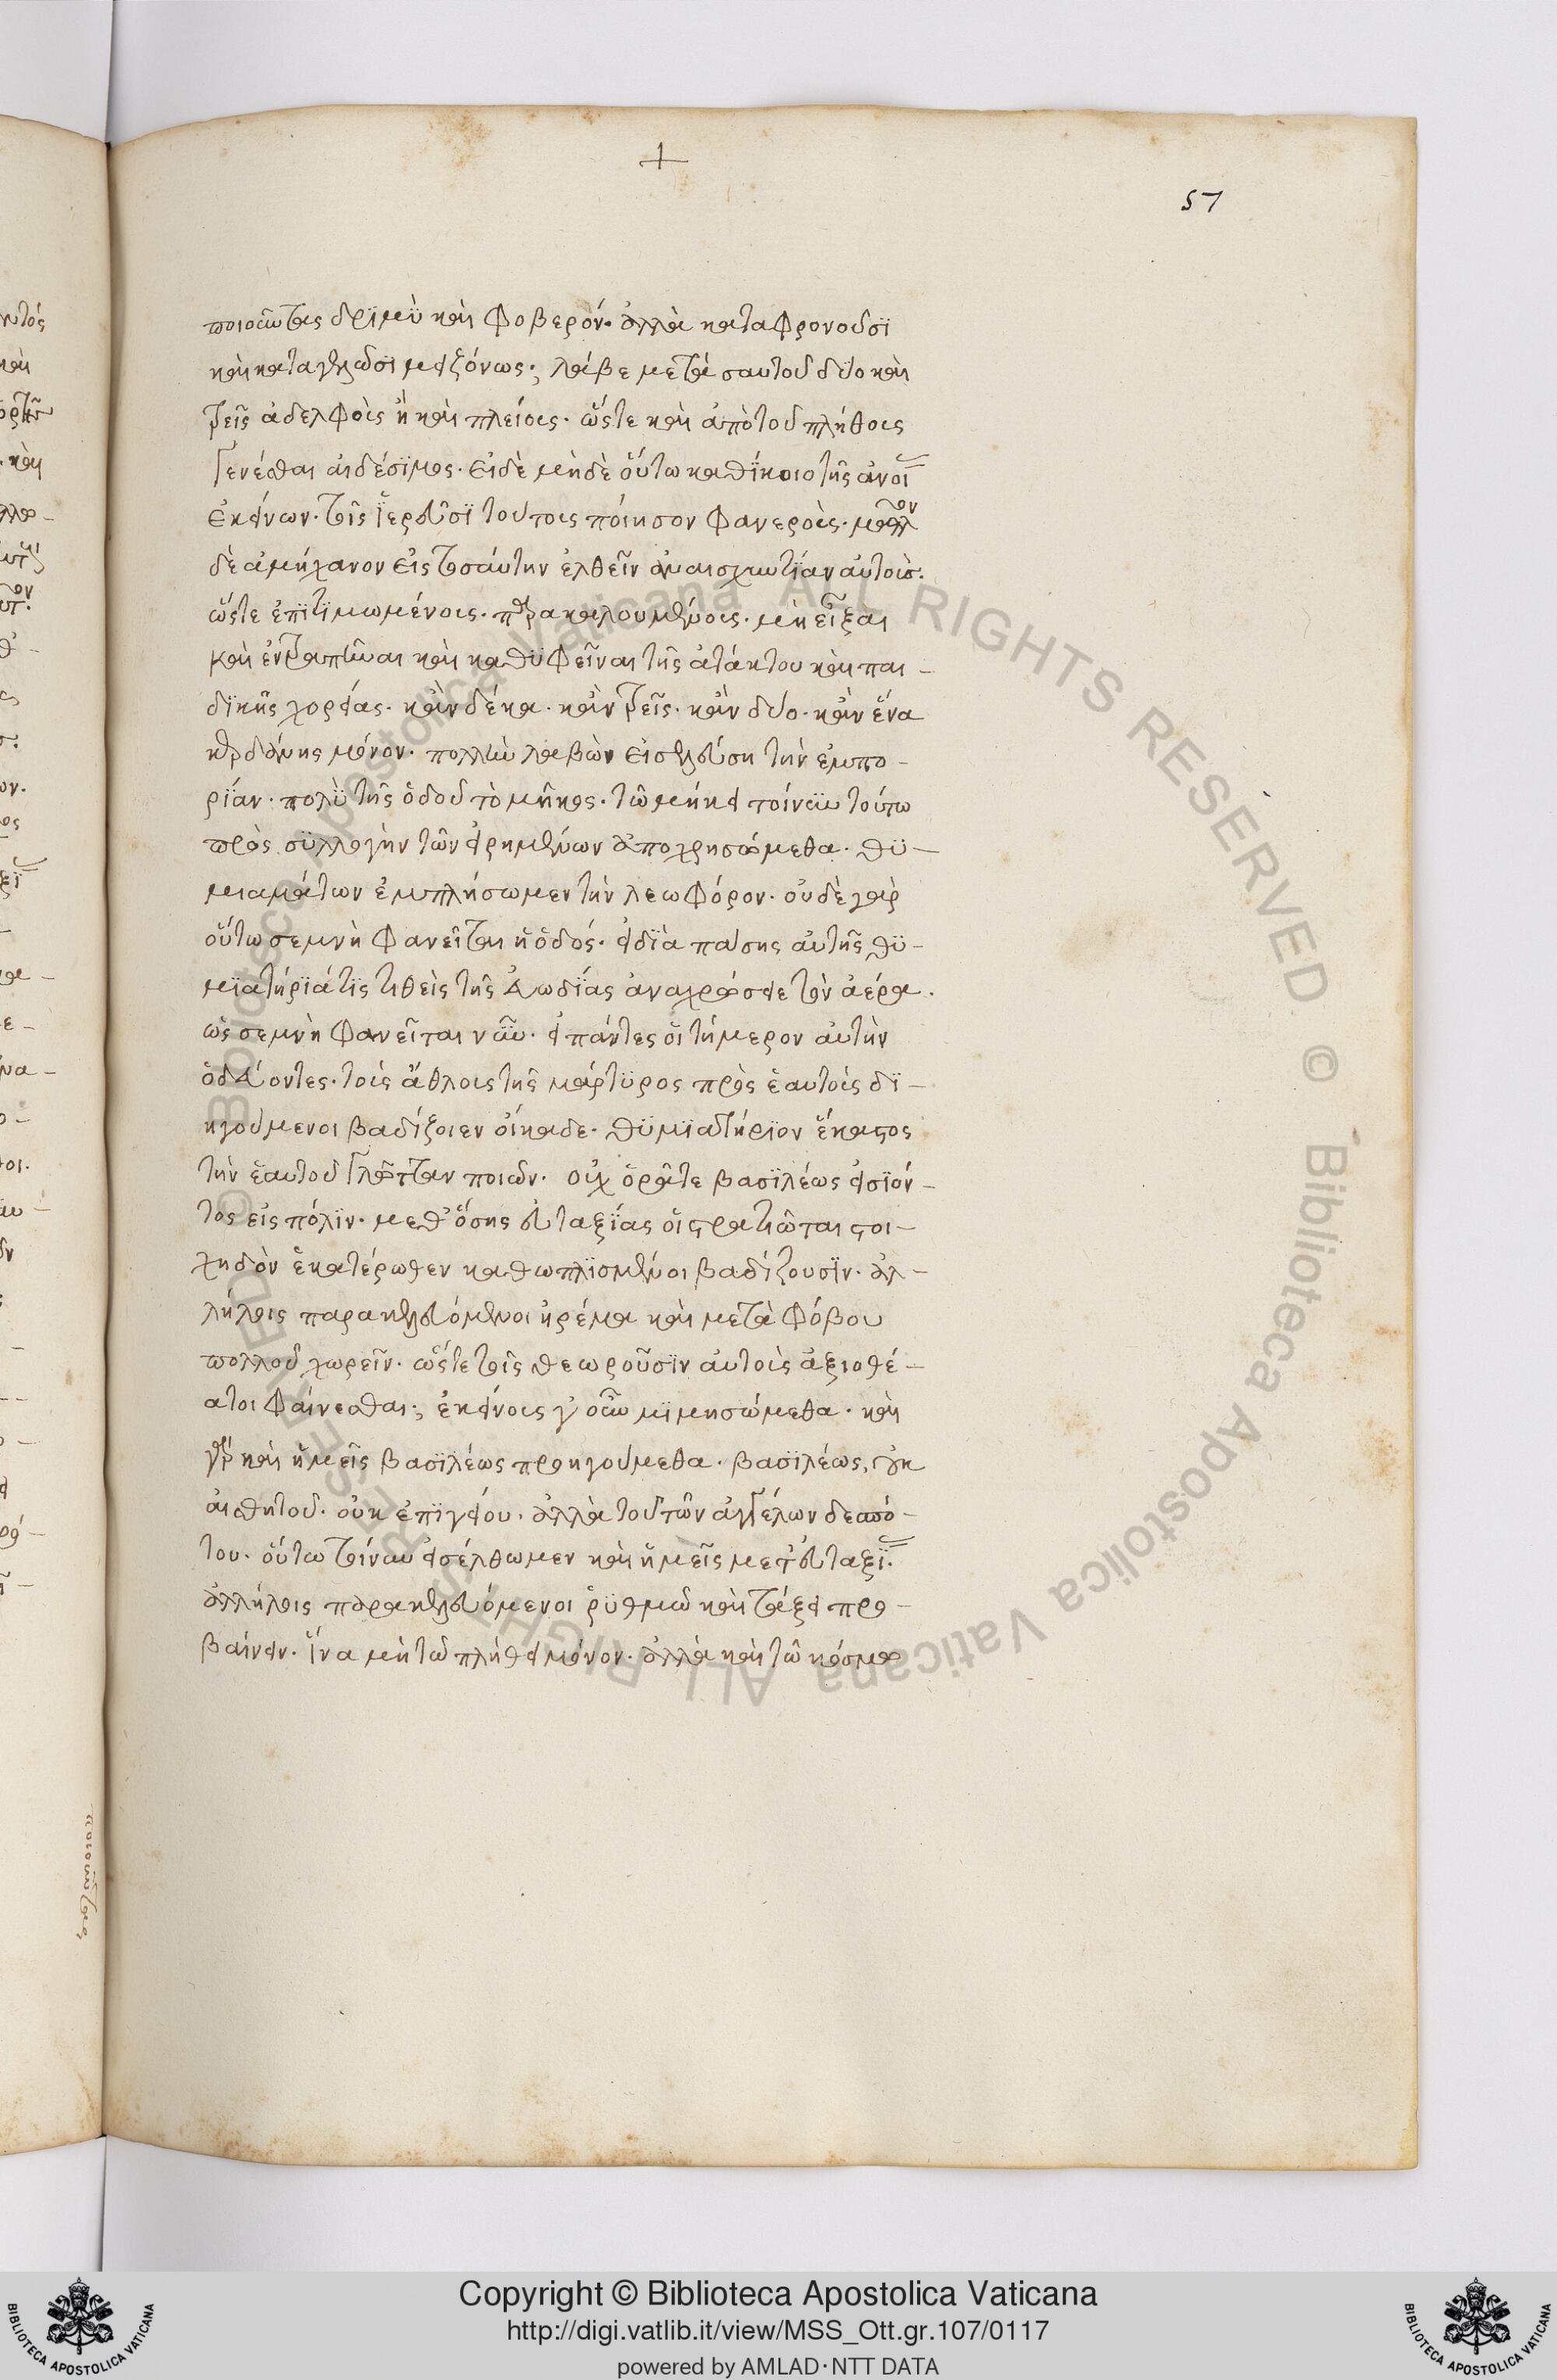 +
57
ποιοῦντας δριμὺ καὶ φοβερόν· ἀλλὰ καταφρονοῦσϊ
καὶ καταγελῶσι μειζόνως; λάβε μετὰ σαυτοῦ δύο καὶ
τρεῖς ἀδελφοὺς ἢ καὶ πλείους· ὥστε καὶ ἀπὸ τοῦ πλήθους
γενέσθαι αἰδέσϊμος· εἰ δὲ μὴδὲ οὕτω καθίκοιο τῆς ἀνοί
ἐκείνων· τοῖς ϊερεῦσϊ τούτους ποίησον φανερούς· μᾶλλον
δὲ ἀμήχανον εἰς τοσαύτην ἐλθεῖν ἀναισχυντίαν αὐτούς·
ὥστε ἐπϊτϊμωμένους· παρακαλουμένους· μὴ εἶξαι
καὶ ἐντραπῆναι καὶ καθϋφεῖναι τῆς ἀτάκτου καὶ παι-
δϊκῆς χορείας· κἂν δέκα· κἂν τρεῖς· κἂν δύο· κἂν ἕνα
κερδάνης μόνον· πολλὴν λαβὼν εἰσελεύση τὴν ἐμπο-
ρίαν· πολὺ τῆς ὁδοῦ τὸ μῆκος· τῶ μήκει τοίνϋν τούτω
πρὸς σϋλλογὴν τῶν εἰρημένων ἀποχρησώμεθα· θϋ-
μιαμάτων ἐμπλήσωμεν τὴν λεωφόρον· οὐδὲ γὰρ
οὕτω σεμνὴ φανεῖται ἡ ὁδός· εἰ δϊὰ πάσης αὐτῆς θϋ-
μϊατήρϊά τϊς τιθεὶς τῆς εὐωδίας ἀναχρώσειε τὸν ἀέρα·
ὡς σεμνὴ φανεῖται νῦν· εἰ πάντες οἱ τήμερον αὐτὴν
ὁδεύοντες· τοὺς ἄθλους τῆς μάρτϋρος πρὸς ἑαυτοὺς δϊ-
ηγούμενοι βαδίζοιεν οἴκαδε· θϋμϊατήρϊον ἕκαστος
τὴν ἑαυτοῦ γλῶτταν ποιῶν· οὐχ ὁρᾶτε βασϊλέως εἰσϊόν-
τος εἰς πόλϊν· μεθ' ὅσης εὐταξίας οἱ στρατιῶται στοι-
χηδὸν ἑκατέρωθεν καθωπλϊσμένοι βαδίζουσϊν· ἀλ-
λήλοις παρακελευόμενοι ἠρέμα καὶ μετὰ φόβου
πολλοῦ χωρεῖν· ὥστε τοῖς θεωροῦσϊν αὐτοὺς ἀξιοθέ-
ατοι φαίνεσθαι; ἐκείνους γ' οὖν μϊμησώμεθα· καὶ
γὰρ καὶ ἡμεῖς βασϊλέως προηγούμεθα· βασϊλέως, οὐκ
αἰσθητοῦ· οὐκ ἐπϊγείου· ἀλλὰ τοῦ τῶν ἀγγέλων δεσπό-
του· οὕτω τοίνυν εἰσέλθωμεν καὶ ἡμεῖς μετ' εὐταξϊ·
ἀλλήλοις παρακελευόμενοι ῥϋθμῶ καὶ τάξει προ-
βαίνειν· ἵνα μὴ τῶ πλήθει μόνον· ἀλλὰ καὶ τῶ κόσμω
ποιοῦντας
Copyright © Biblioteca Apostolica Vaticana
http://digi.vatlib.it/view/MSS_Ott.gr.107/0117
powered by AMLAD·NTT DATA